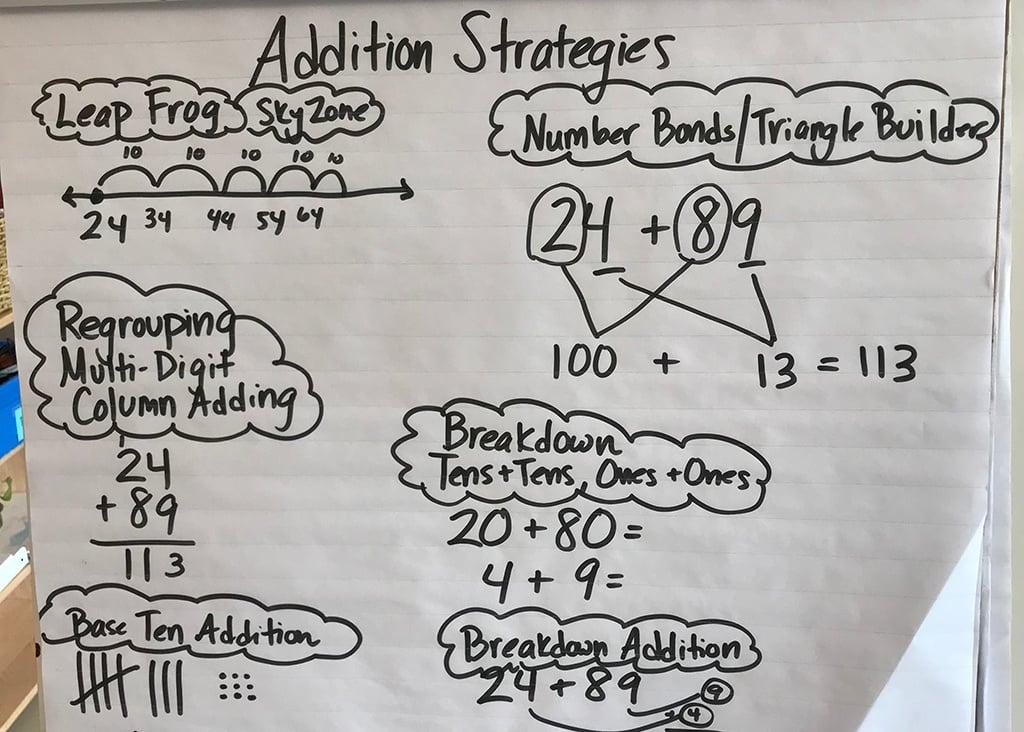 Addition Strategies
Leap Frog
Sky Zone
10 10 10 10 10
24 34 44 54 64
Number Bonds/Triangle Builder
24 + 89
100 + 13 = 113
Regrouping
Multi-Digit
Column Adding
1
24
+ 89
113
Breakdown
Tens + Tens, Ones + Ones
20 + 80 =
4 + 9 =
Base Ten Addition
Breakdown Addition
24 + 89
9
4